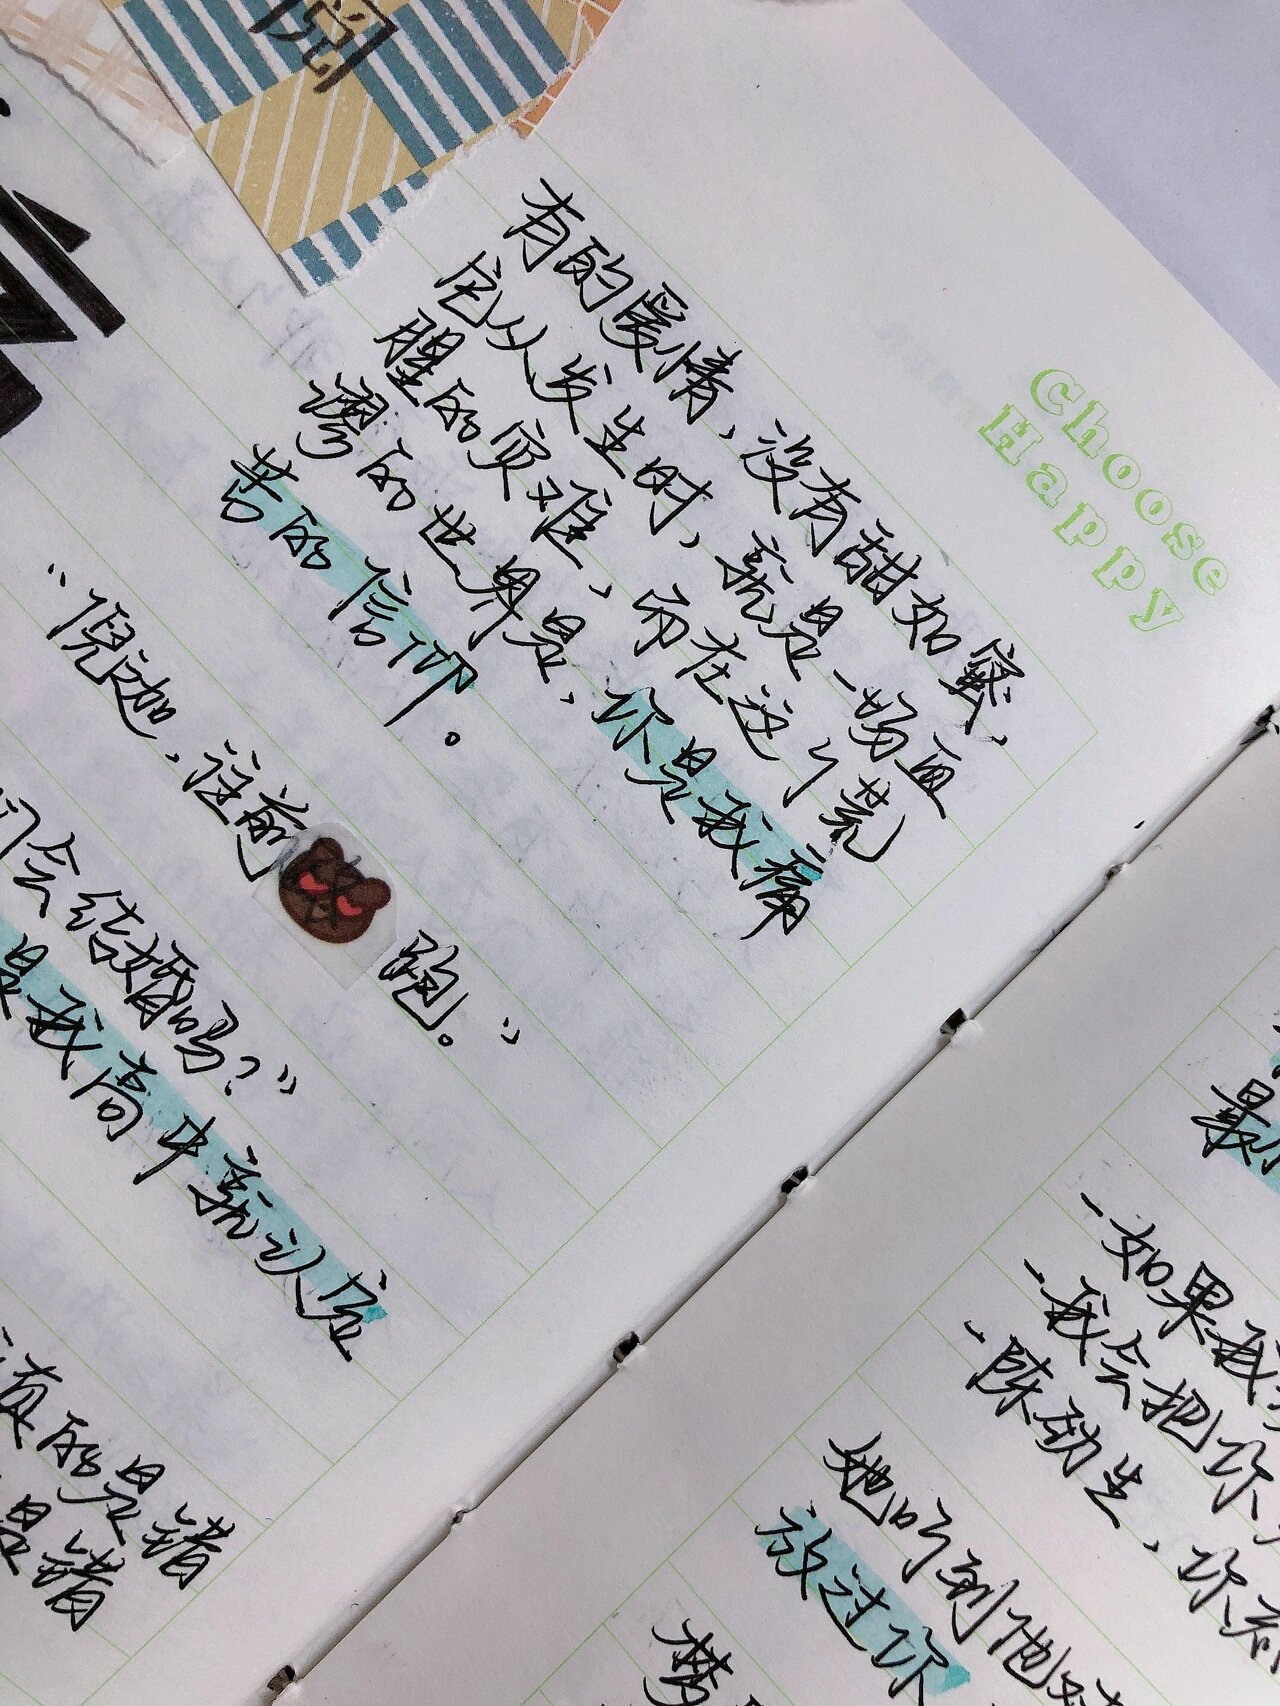 阅
Choose
Happy
有的爱情,没有甜如蜜,
它从发生时,就是一场血
腥的灾难,而在这个荒
谬的世界是,你是我痛
苦的信仰。
“倪迦,往前 跑。”
们会结婚吗?”
是我高中就认定
的是错
是错
最
-如果我
-我会把你
-陈劲生,你
她听到他
放过你
梦